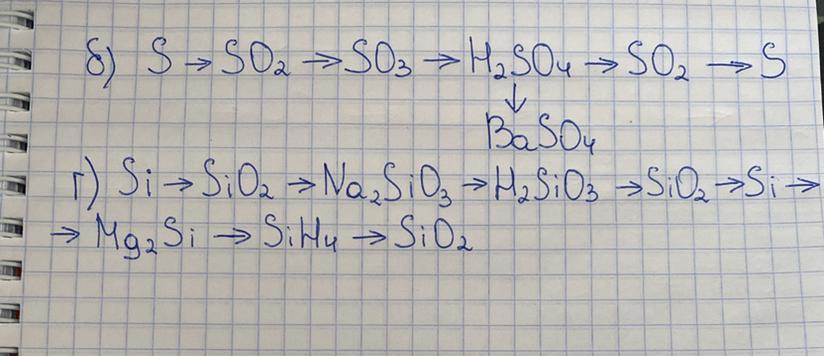 б) S → SO₂ → SO₃ → H₂SO₄ → SO₂ → S
↓
BaSO₄
г) Si → SiO₂ → Na₂SiO₃ → H₂SiO₃ → SiO₂ → Si →
→ Mg₂Si → SiH₄ → SiO₂